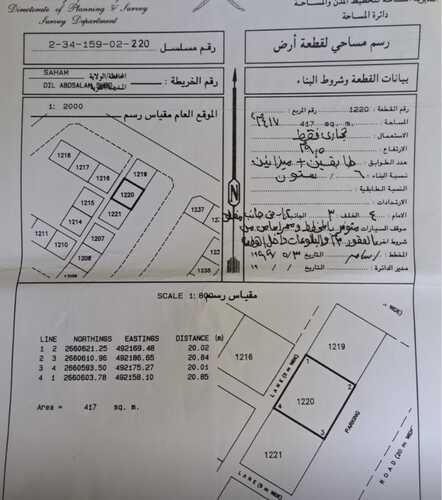 Directorate of Planning & Survey
Survey Department
دائرة المساحة
2-34-159-02-220
رقم مسلسل
رسم مساحي لقطعة أرض
SAHAM
المحافظة/الولاية
DIL ABDSALAM
رقم الخريطة
بيانات القطعة وشروط البناء
1: 2000
الموقع العام مقياس رسم
رقم القطعة: 1220
رقم المربع:
المساحة: 417 sq. m.
الاستعمال: تجاري فقط
الارتفاع:
عدد الطوابق: طابقين +
نسبة البناء: ٦٠ ستون
النسبة الطابقية:
الارتدادات:
الامام: ٤ الخلف: ٣
موقف السيارات:
شروط اخرى:
المخطط:
التاريخ:
مدير الدائرة
التاريخ: / / ١٩
N
1218
1217
1216
1219
1220
1221
1215
1214
1211
1210
1207
1237
1238
SCALE 1: 800 مقياس رسم
LINE NORTHINGS EASTINGS DISTANCE (m)
1 2 2660621.25 492169.48 20.02
2 3 2660610.96 492186.65 20.84
3 4 2660593.50 492175.27 20.01
4 1 2660603.78 492158.10 20.85
Area = 417 sq. m.
1216
1219
1220
1221
LANE (9 m WDE)
PARKING
ROAD (20 m WDE)
LANE (9 m WDE)